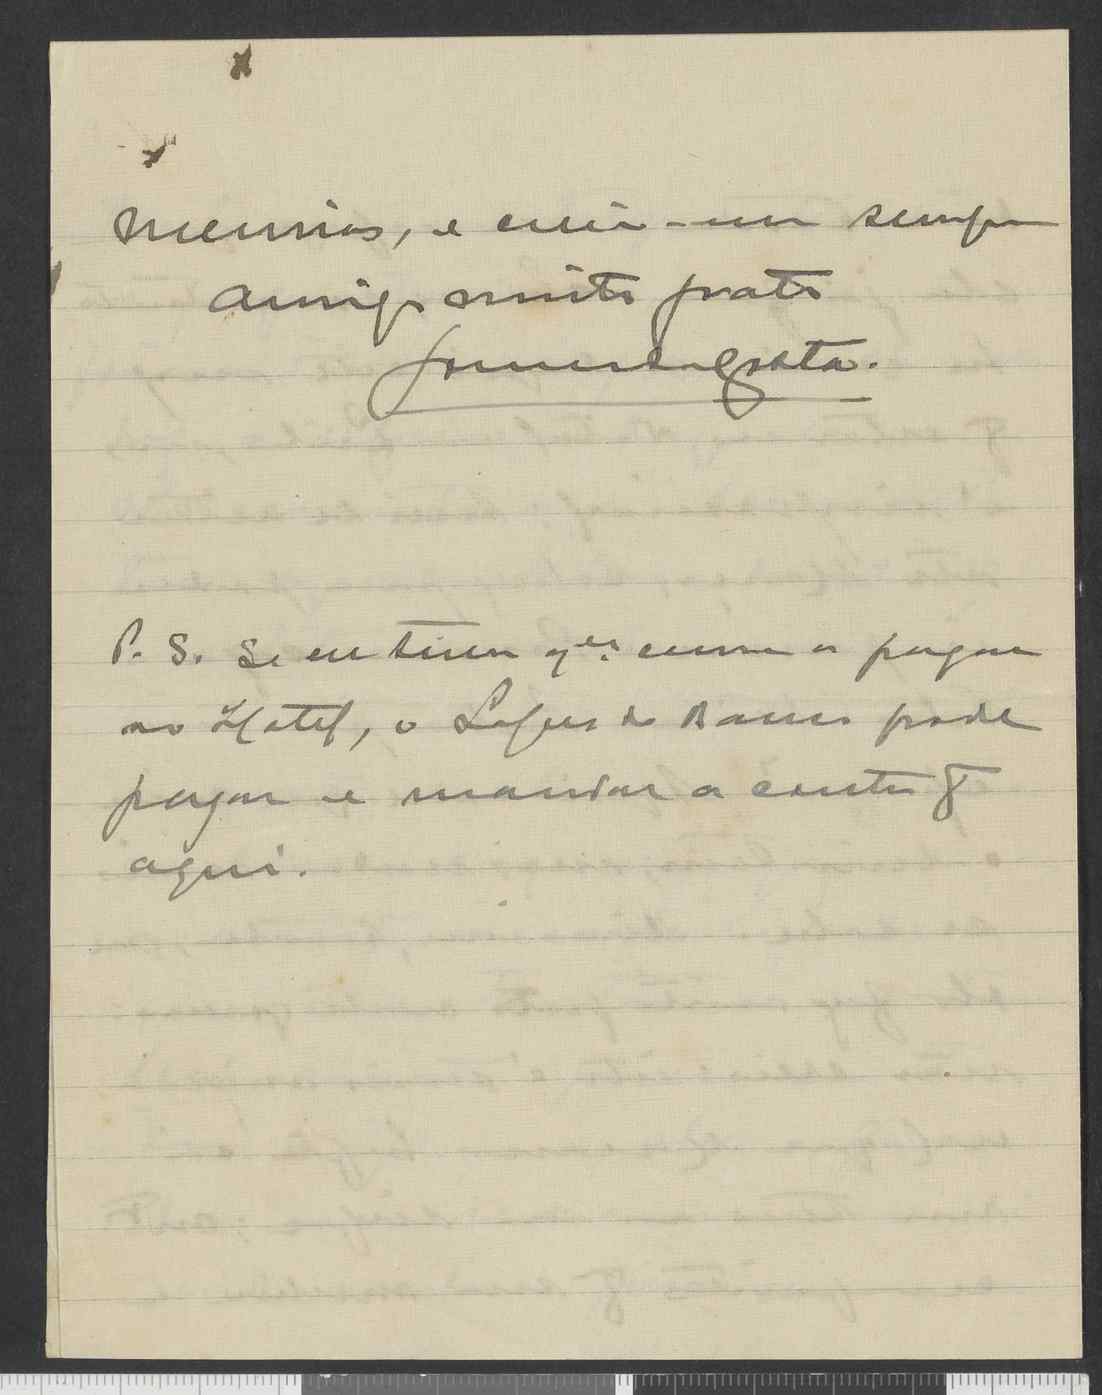 meninas, e creia-me sempre
amigo muito grato
Gomes da Costa.
P. S. Se eu tiver q.er coisa a pagar
no Hotel, o Lopes do Banco pode
pagar e mandar a conta p
aqui.